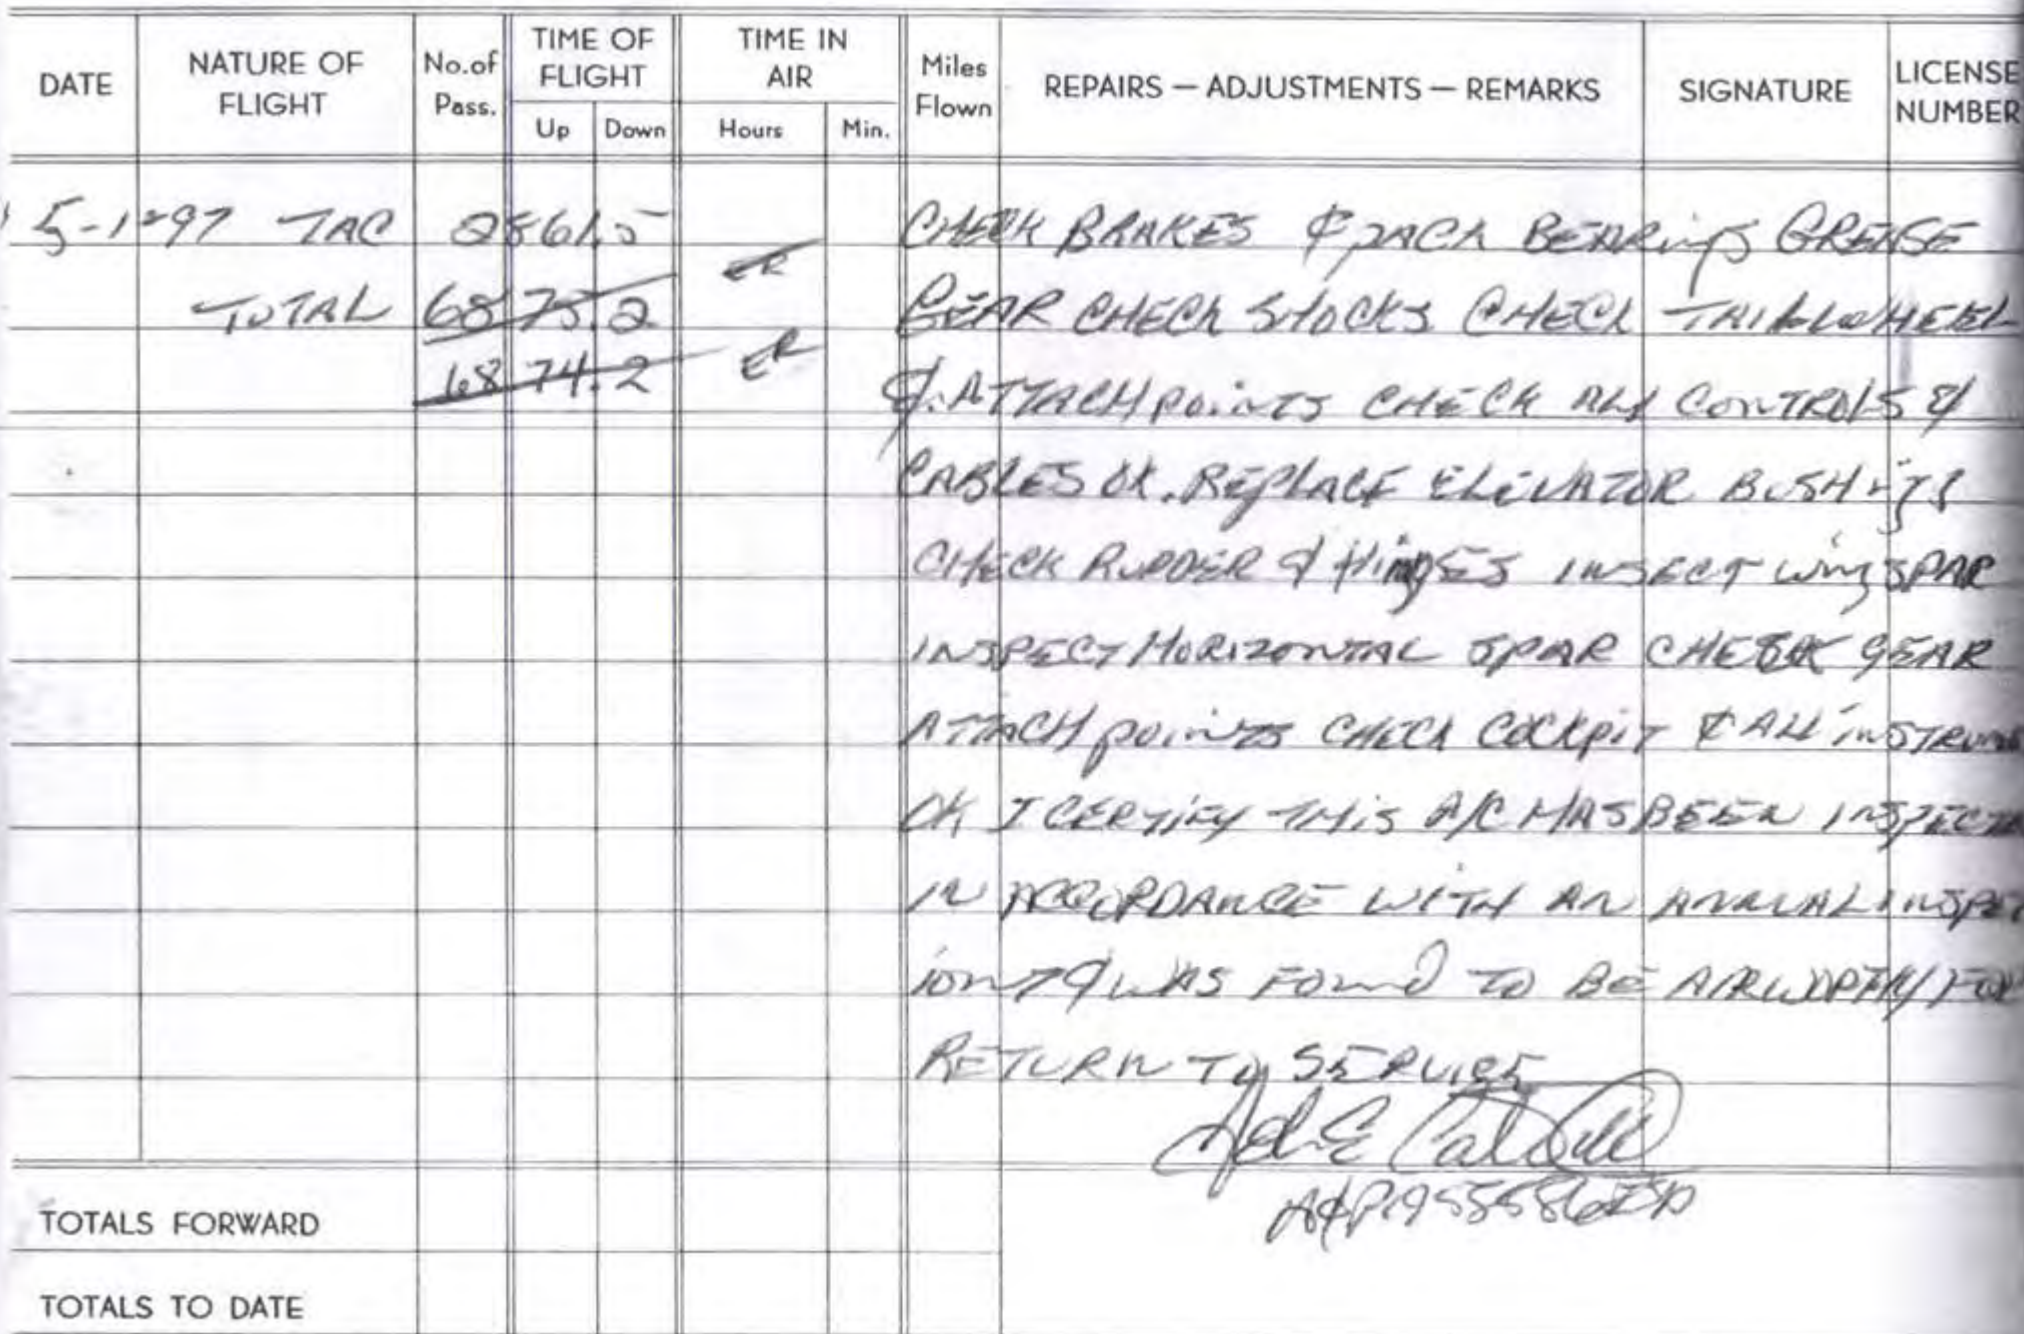 DATE NATURE OF FLIGHT No.of Pass. TIME OF FLIGHT Up Down TIME IN AIR Hours Min. Miles Flown REPAIRS — ADJUSTMENTS — REMARKS SIGNATURE LICENSE NUMBER
5-1-97 TAC 2561.5 CHECK BRAKES & PACK BEARINGS GREASE
TOTAL 6875.2 ER GEAR CHECK SHOCKS CHECK TAILWHEEL
6874.2 ER & ATTACH POINTS CHECK ALL CONTROLS &
CABLES OK. REPLACE ELEVATOR BUSHINGS
CHECK RUDDER & HINGES INSECT WING SPAR
INSPECT HORIZONTAL SPAR CHECK GEAR
ATTACH POINTS CHECK COCKPIT & ALL INSTRUM
OK I CERTIFY THIS A/C HAS BEEN INSPECT
IN ACCORDANCE WITH AN ANNUAL INSPECT
ION & WAS FOUND TO BE AIRWORTHY FOR
RETURN TO SERVICE
A&P
TOTALS FORWARD
TOTALS TO DATE